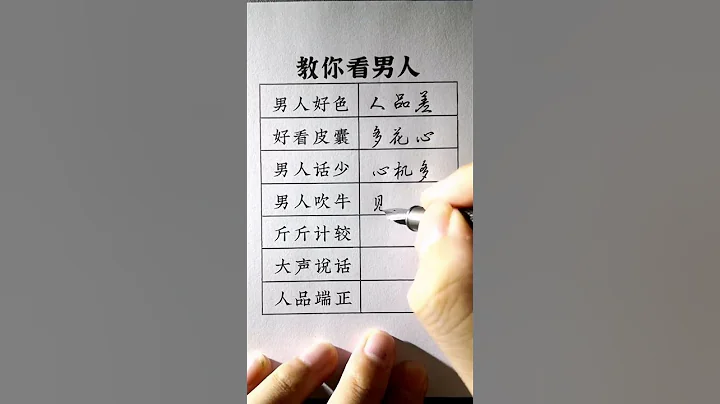 教你看男人
男人好色 人品差
好看皮囊 多花心
男人话少 心机多
男人吹牛
斤斤计较
大声说话
人品端正